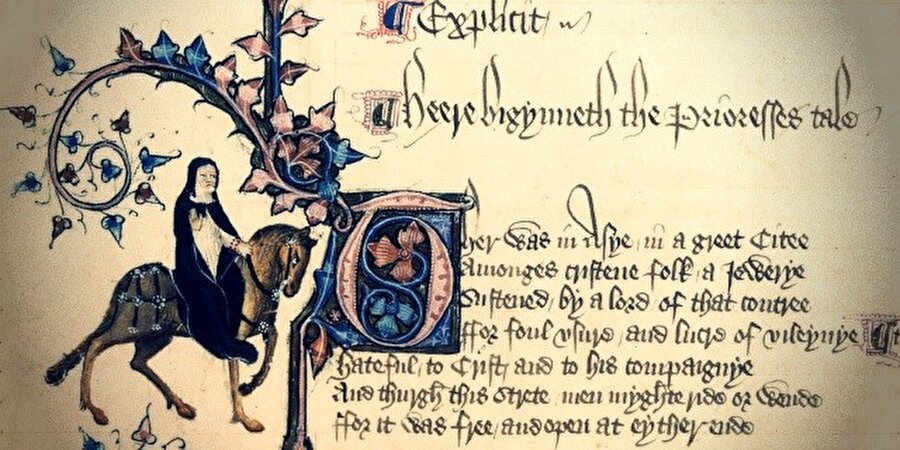 Explicit
Heere bigynneth the Prioresses tale
Ther was in Asye / in a greet Citee
Amonges cristene folk / a Jewerye
Sustened / by a lord of that contree
ffor foul vsure / and lucre of vileynye
Hateful / to Crist / and to his compaignye
And thurgh this Strete / men myghte ride or wende
ffor it was free / and open at eyther ende